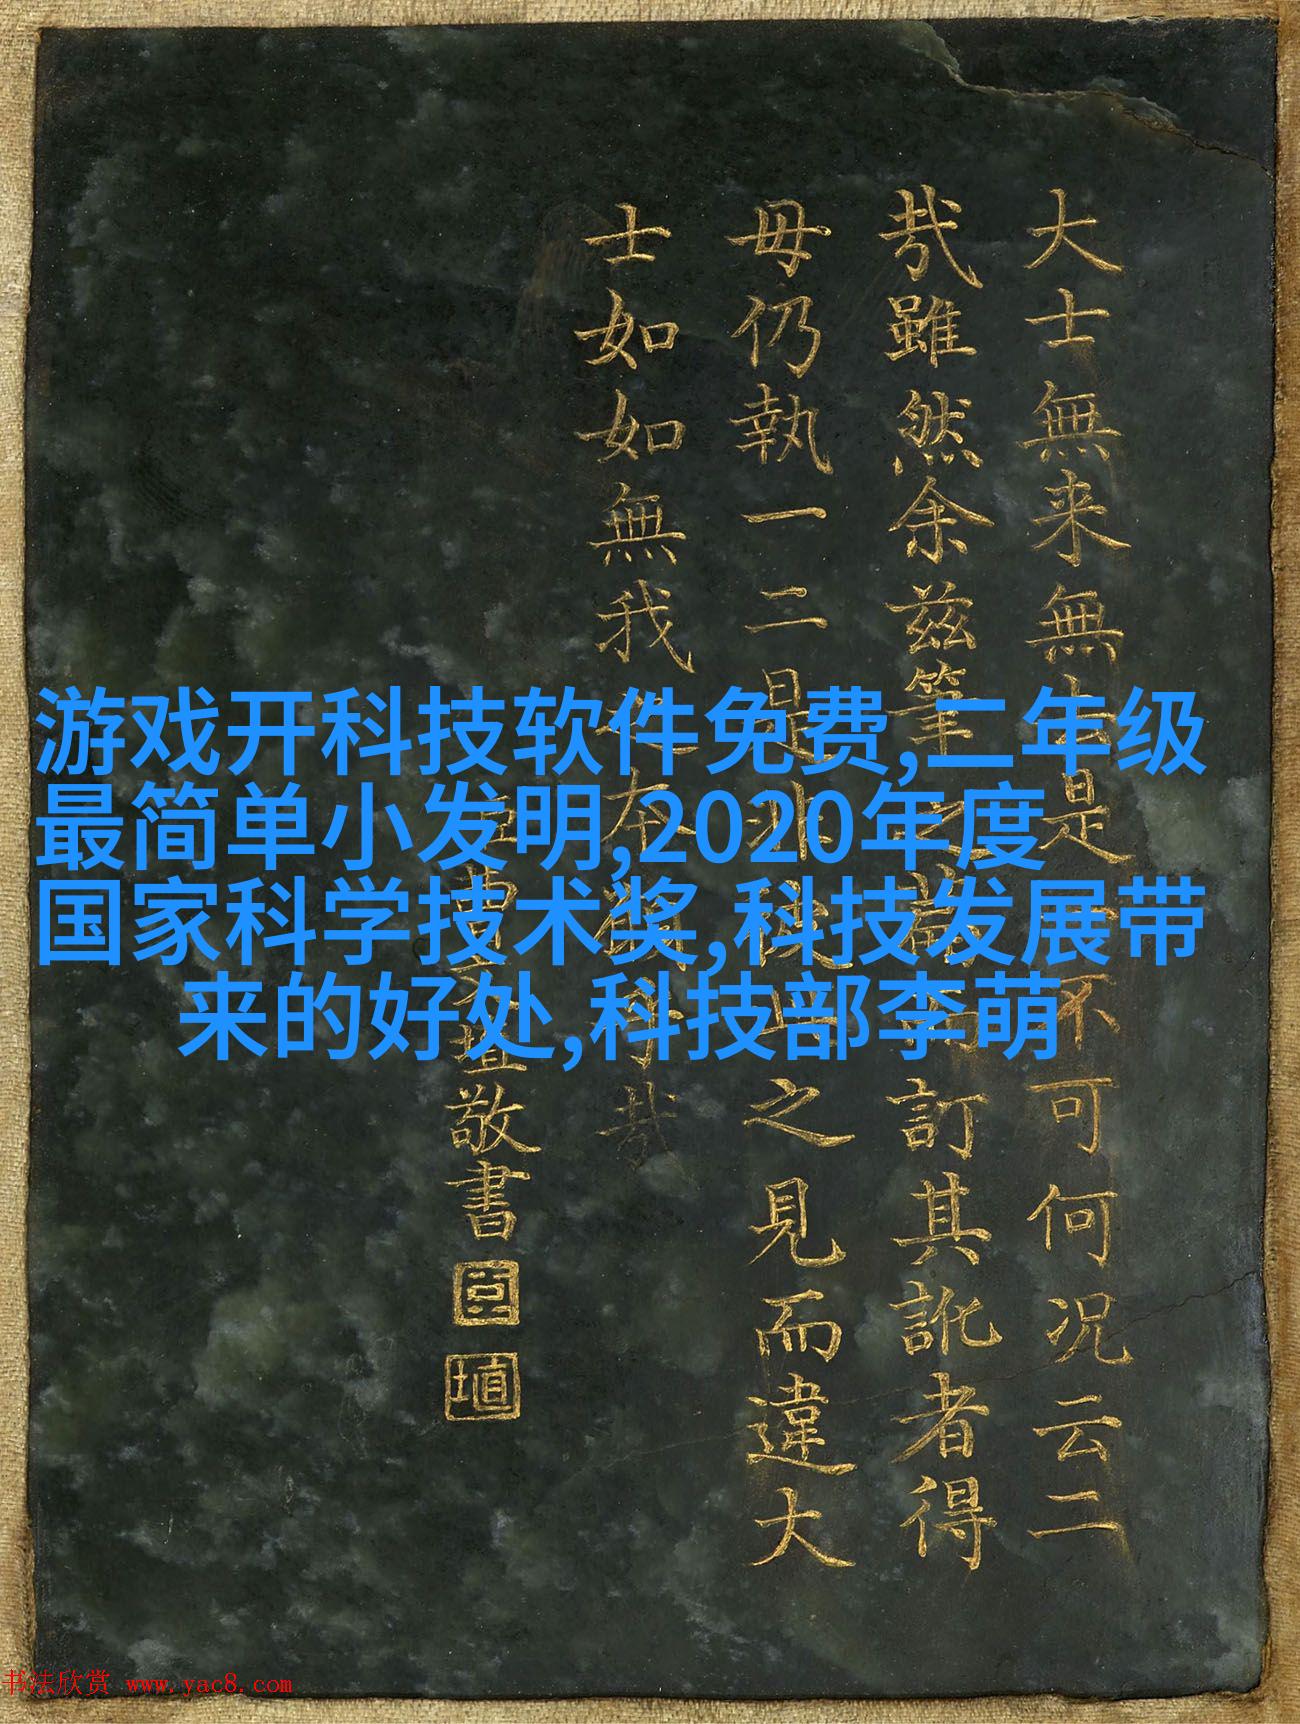 大士無来無去是一不可何况云二
哉雖然余兹筆之藉訂其訛者得
毋仍執一二是非彼此之見而違大
士如如無我之本願也哉
臣曹文埴敬書
臣
埴
游戏开科技软件免费,二年级
最简单小发明,2020年度
国家科学技术奖,科技发展带
来的好处,科技部李萌
书法欣赏 www.yac8.com